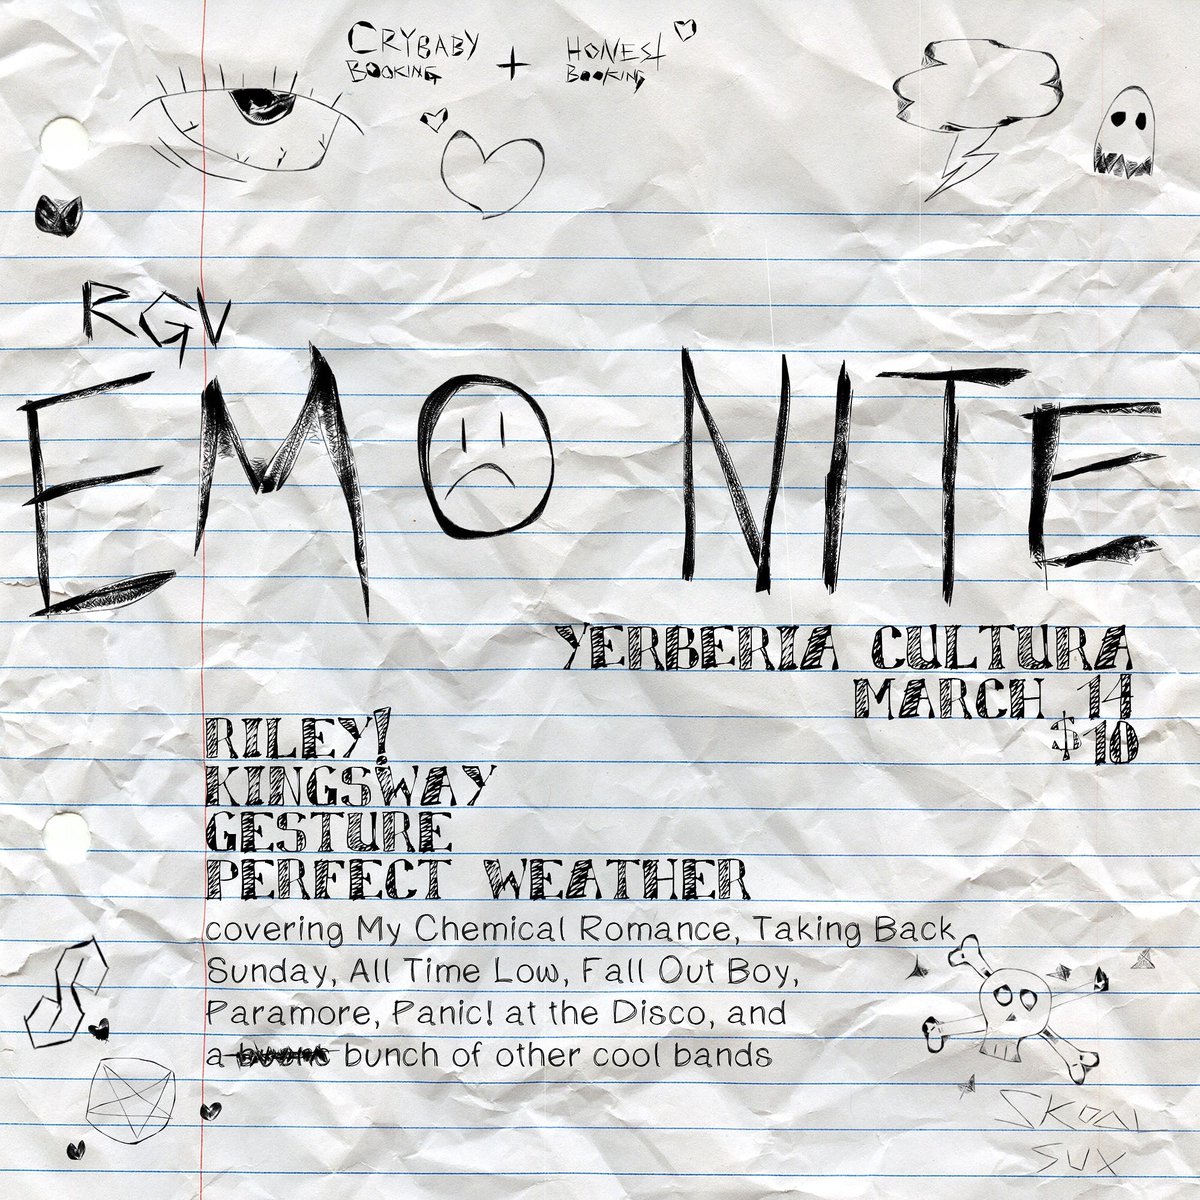 CRYBABY + HONEST
BOOKING BOOKING
RGV
EMO NITE
YERBERIA CULTURA
MARCH 14
$10
RILEY!
KINGSWAY
GESTURE
PERFECT WEATHER
covering My Chemical Romance, Taking Back
Sunday, All Time Low, Fall Out Boy,
Paramore, Panic! at the Disco, and
a bunch of other cool bands
SKOOL
SUX